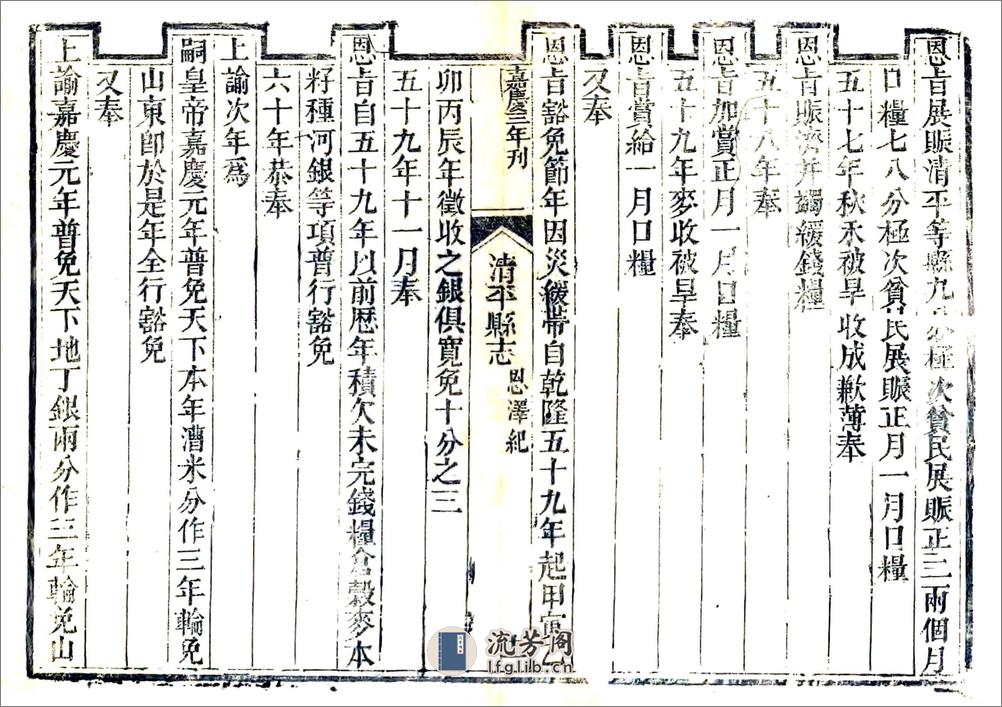 恩旨展賑清平等縣九分極次貧民展賑正二兩個月
口糧七八分極次貧民展賑正月一月口糧
五十七年秋禾被旱收成歉薄奉
恩旨賑濟并蠲緩錢糧
五十八年奉
恩旨加賞正月一月口糧
五十九年麥收被旱奉
恩旨賞給一月口糧
又奉
恩旨豁免節年因災緩帶自乾隆五十九年起甲寅乙
嘉慶三年刊
清平縣志 恩澤紀
卯丙辰年徵收之銀俱寬免十分之三
五十九年十一月奉
恩旨自五十九年以前歷年積欠未完錢糧倉穀麥本
籽種河銀等項普行豁免
六十年恭奉
上諭次年爲
嗣皇帝嘉慶元年普免天下本年漕米分作三年輪免
山東卽於是年全行豁免
又奉
上諭嘉慶元年普免天下地丁銀兩分作三年輪免山
流芳閣
l.f.g.l.lib.cn